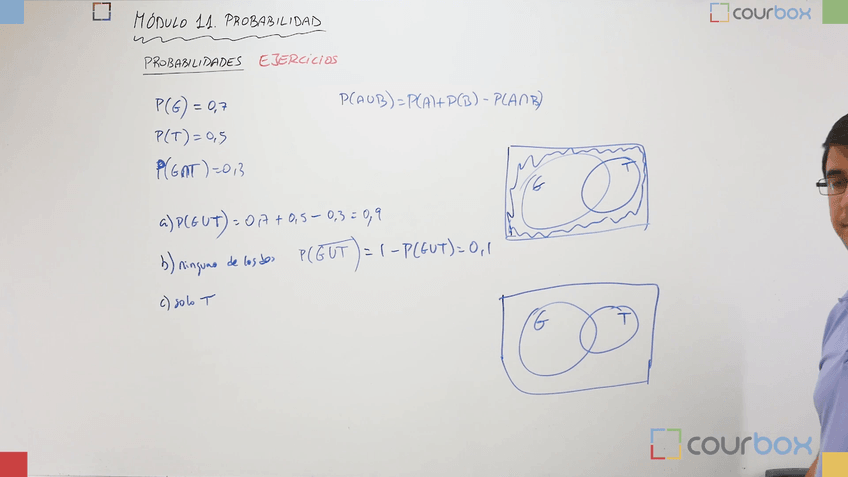 MÓDULO 11. PROBABILIDAD
courbox
PROBABILIDADES EJERCICIOS
P(G) = 0,7
P(A∪B) = P(A) + P(B) - P(A∩B)
P(T) = 0,5
P(G∩T) = 0,3
G T
a) P(G∪T) = 0,7 + 0,5 - 0,3 = 0,9
b) ninguno de los dos P(G̅∪̅T̅) = 1 - P(G∪T) = 0,1
c) solo T
G T
courbox